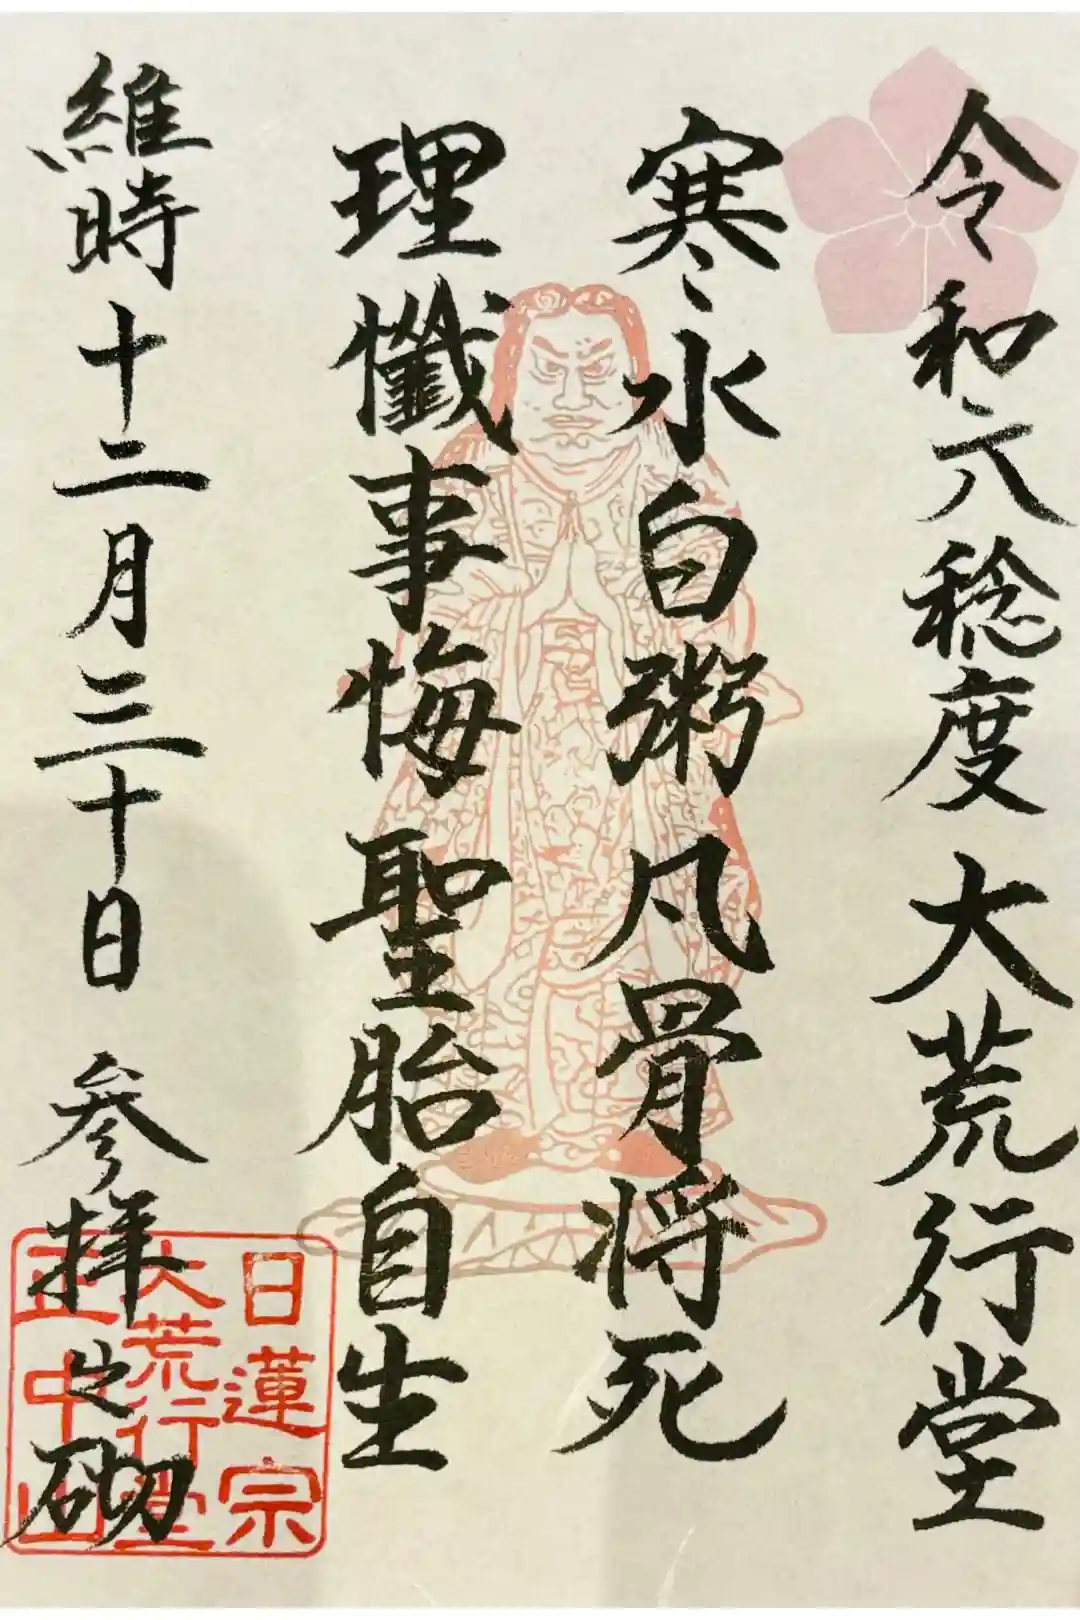 令和六稔度大荒行堂
寒水白粥凡骨将死
理懺事悔聖胎自生
維時十二月三十日 参拝之砌
日蓮宗
大荒行堂
正中山